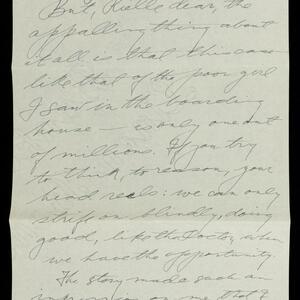 But, Nelle dear, the
appalling thing about
it all is that this case
like that of the poor girl
I saw in the boarding
house — is only one out
of millions. If you try
to think, to reason, your
head reels: we can only
strive on blindly, doing
good, like the Doctor, when
we have the opportunity.
The story made such an
impression on me that I